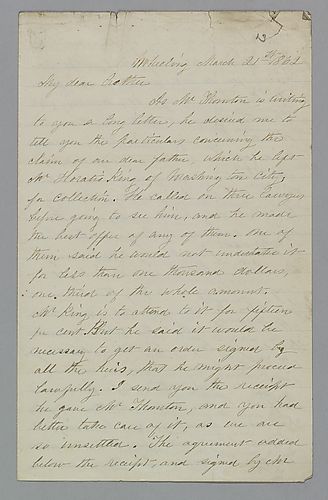 Wheeling March 21st 1862
My dear Brother
As Mr Thornton is writing
to you a long letter, he desired me to
tell you the particulars concerning the
claim of our dear father, which he left
Mr Horatio King of Washington City,
for collection. He called on three lawyers
before going to see him, and he made
the best offer of any of them. One of
them said he would not undertake it
for less than one thousand dollars,
one third of the whole amount.
Mr King is to attend to it for fifteen
per cent. But he said it would be
necessary to get an order signed by
all the heirs, that he might proceed
lawfully. I send you the receipt
he gave Mr Thornton, and you had
better take care of it, as we are
so unsettled. The agreement added
below the receipt, and signed by Mr